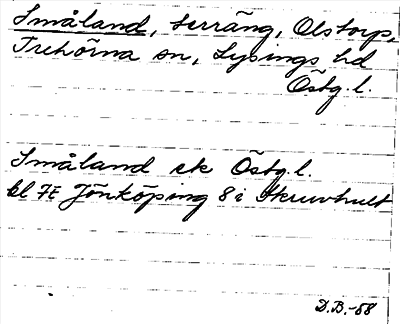 Småland, terräng, Olstorp,
Trehörna sn, Lysings hd
Östg. l.
Småland ek Östg. l.
bl 7E Jönköping 8 i Skruvhult
D.B.-58